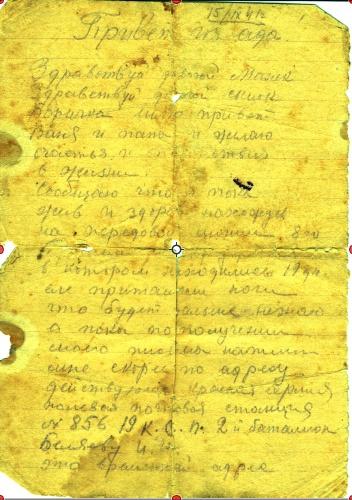 15/IX 41 г
Привет из ада
Здравствуй дорогой
Здравствуй дорогой сынок
Боричка шлю привет
Ваня и папа и желаю
счастья и
в жизни.
Сообщаю что я пока
жив и здоров нахожусь
на передовой линии
в котором находились 19 дн.
еле притащили ноги
что будет дальше незнаю
а пока по получении
моего письма напиши
мне скорей по адресу
действующая красная армия
полевая почтовая станция
№ 856 19 К. С. П. 2й баталион
Беляеву
это адрес